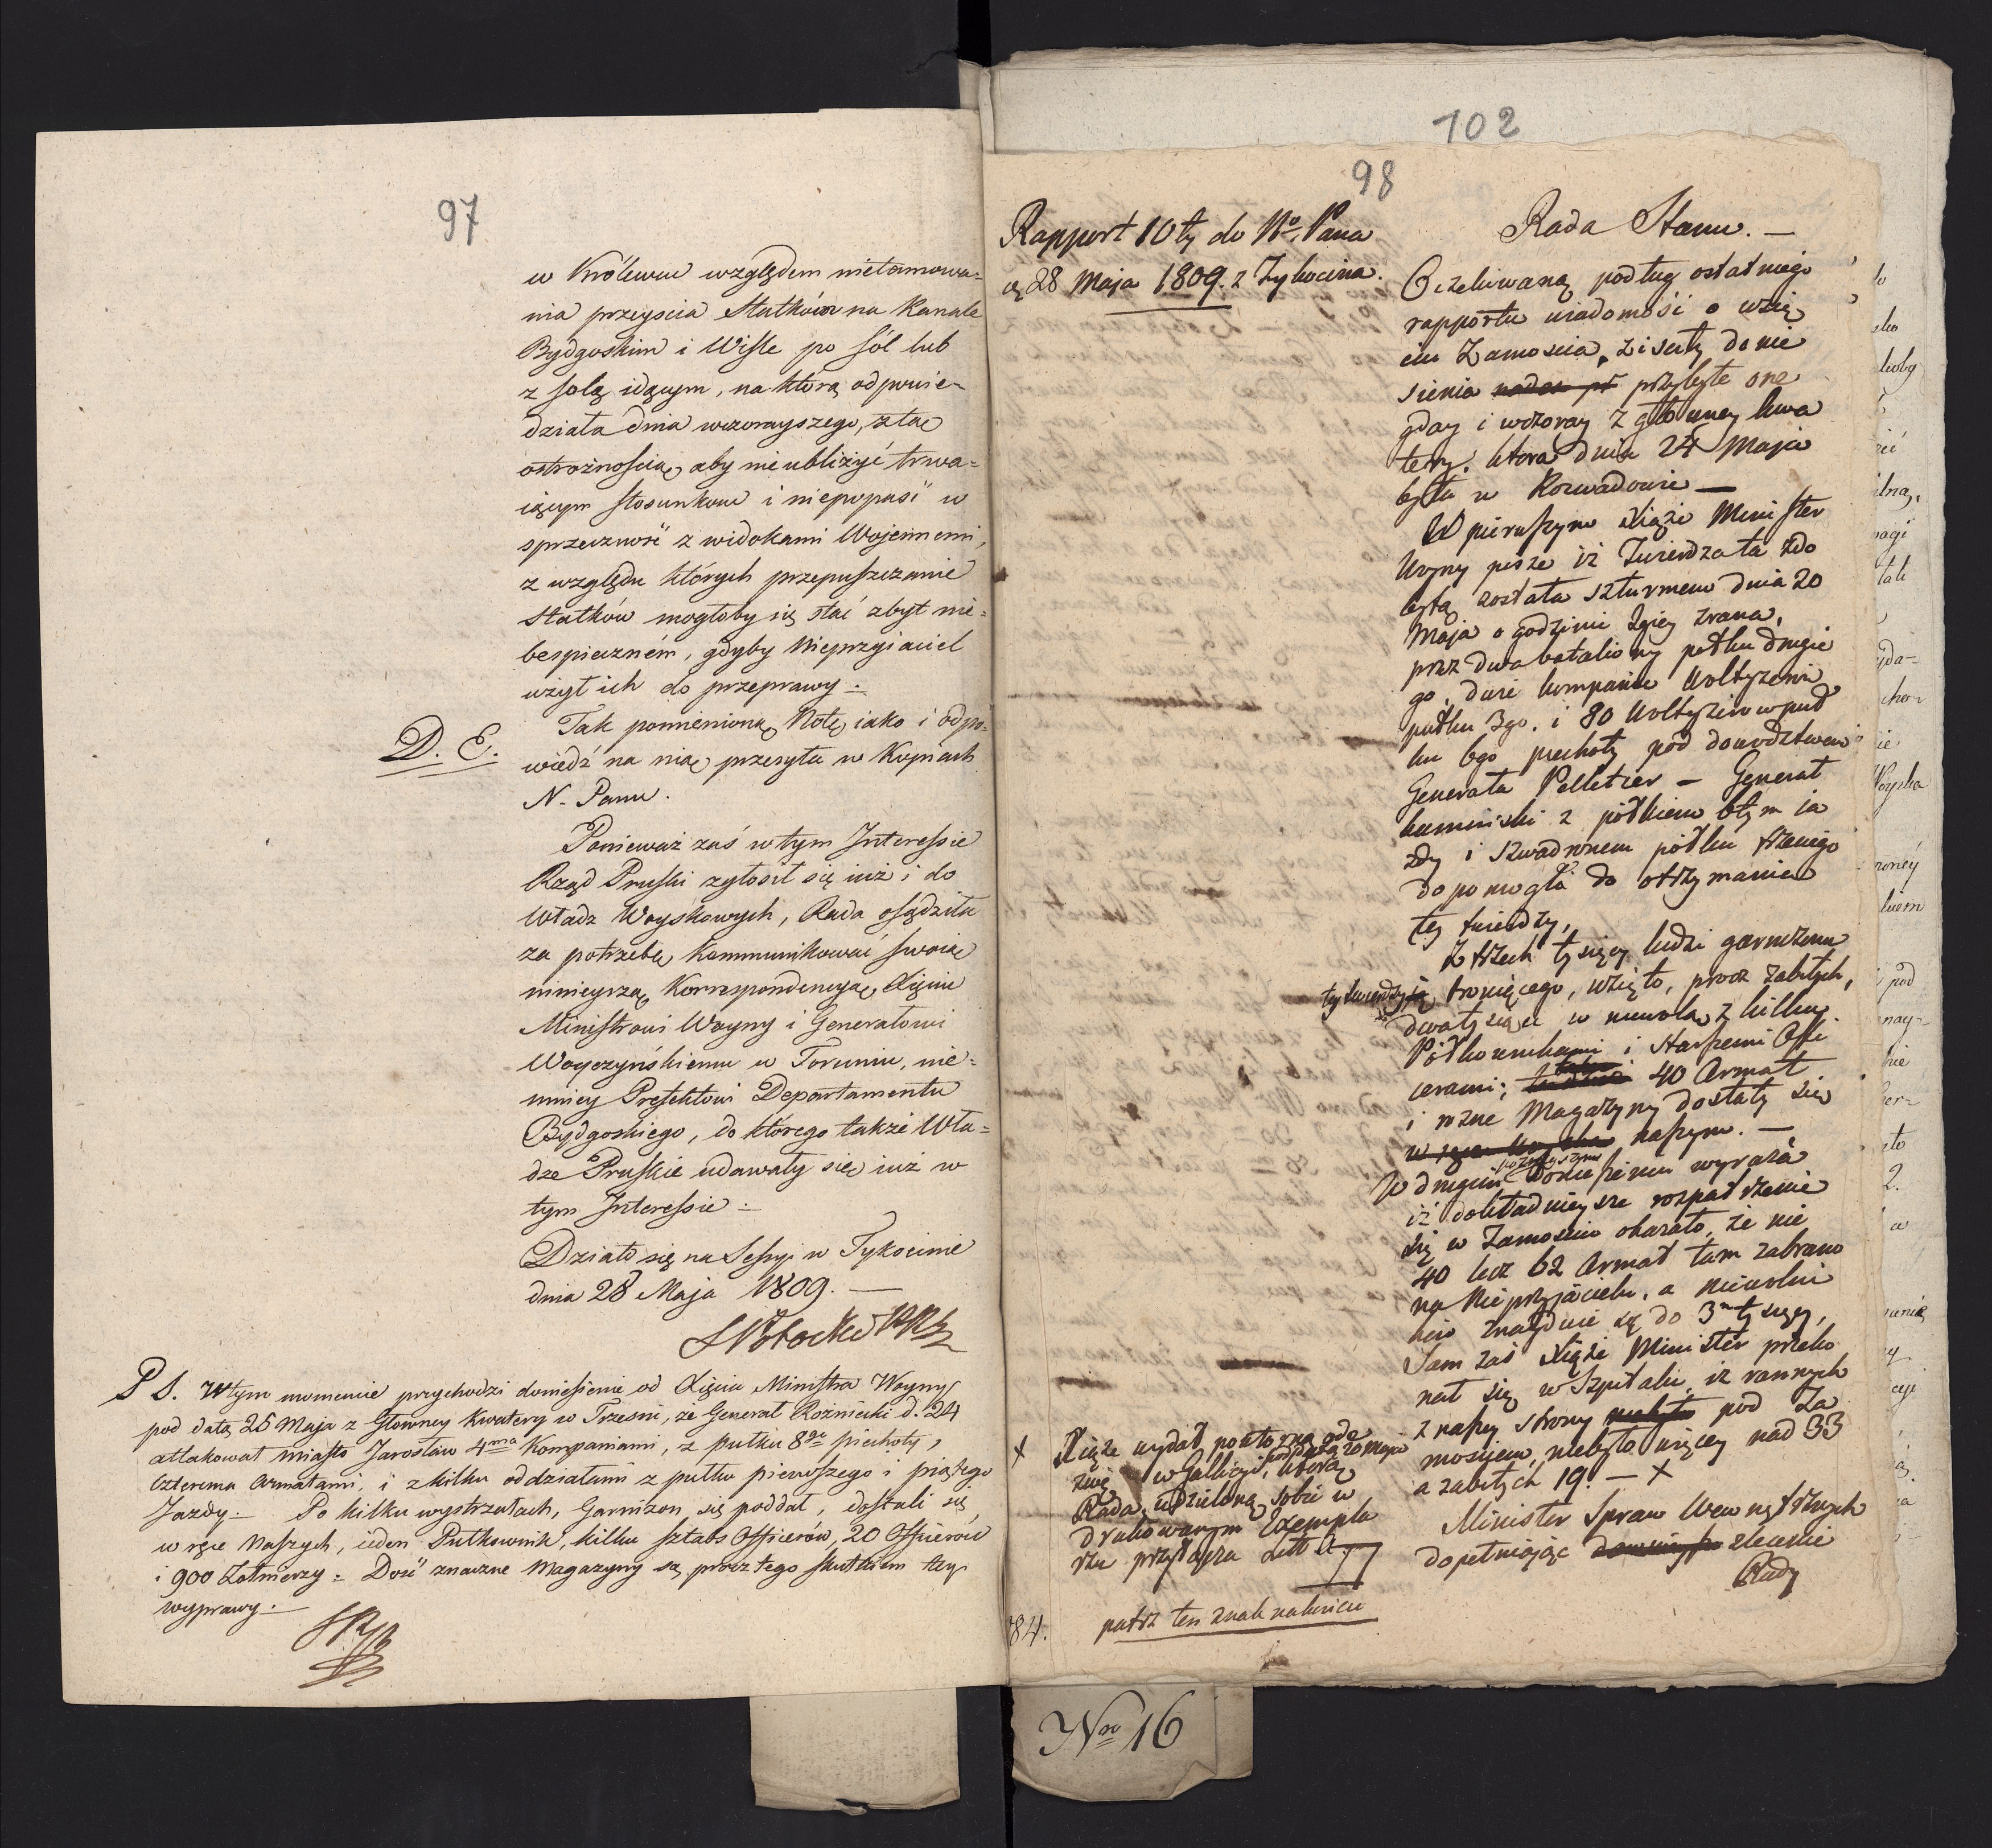 97
w Królewcu względem nietamowa=
nia przeyscia Statków na Kanale
Bydgoskim i Wiśle po sól lub
z solą idącym, na którą odpowie=
działa dnia wczorayszego, z tą
ostrożnością, aby nie ubliżyć trwa=
iącym stosunkom i niepopaść w
sprzeczność z widokami Wojennemi,
z względu których przepuszczanie
statków mogłoby się stać zbyt nie=
bespiecznem, gdyby Nieprzyiaciel
użył ich do przeprawy.
D. E.
Tak pomienioną Notę, iako i odpo=
wiedź na nią przesyła w Kopiach
N. Panu.
Ponieważ zaś w tym Interessie
Rząd Pruski zgłosił się iuż i do
Władz Woyskowych, Rada osądziła
za potrzebę kommunikować swoią
ninieyszą Korrespondencyą, Xięciu
Ministrowi Woyny i Generałowi
Woyczyńskiemu w Toruniu, nie=
mniey Prefektowi Departamentu
Bydgoskiego, do którego także Wła=
dze Pruskie udawały się iuż w
tym Interessie.
Działo się na Sessyi w Tykocinie
dnia 28 Maja 1809.
P S. W tym momencie przychodzi doniesienie od Xięcia Ministra Woyny
pod datą 25 Maja z Głowney Kwatery w Trzesni, że Generał Rożniecki d. 24
attakował miasto Jarosław 4ma Kompaniami, z pułku 8go piechoty,
czterema Armatami, i z kilku oddziałami z pułku pierwszego i piątego
Jazdy. Po kilku wystrzałach, Garnizon się poddał, dostali się
w ręce Naszych, ieden Pułkownik, kilku sztabs Officierów, 20 Officierów
i 900 Żołnierzy. Dość znaczne Magazyny są procz tego skutkiem tey
wyprawy.
102
98
Rapport 10ty do No. Pana
28 Maja 1809. z Tykocina.
Rada Stanu.
Oczekiwaną podług ostatniego
rapportu wiadomość o wzię
ciu Zamoscia, ziściły donie
sienia przybyłe one
gday i wczoray z główney kwa
tery. która dnia 24 Maja
była w Rozwadowie
W pierwszym Xiąże Minister
Woyny pisze iż Twierdza ta zdo
bytą została szturmem dnia 20
Maja o godzinie 2giey zrana,
przez dwa bataliony połku drugie
go, dwie kompanie Woltyżerów
pułku 3go. i 80 Woltyżerów puł
ku 6go piechoty pod dowództwem
Generała Pelletier - Generał
Kamiński z półkiem 6tym ja
zdy i szwadronem półku trzeciego
dopomogła do otrzymania
tey twierdzy.
Z trzech tysięcy ludzi garnizonu
tey twierdzy broniącego, wzięto, procz zabitych,
dwa tysiące w niewolą z kilku
Półkownikami i starszemi Offi
cerami; 40 Armat
i rożne Magazyny dostały się
naszym.
W drugim doniesieniu wyraża
iż dokładnieysze rozpatrzenie
się w Zamosciu okazało, że nie
40 lecz 62 Armat tam zabrano
na Nieprzyjacielu, a niewolni
ków znayduie się do 3ch tysięcy,
Sam zaś Xiąże Minister przeko
nał się w Szpitalu, iż rannych
z naszey strony pod Za
mosciem, niebyło więcey nad 33
a zabitych 19. - X
Minister Spraw Wewnętrznych
dopełniając zlecenie
Rady
X Xiąże wydał powtorną ode
zwę w Gallicyi, którą
Rada, udzieloną sobie w
drukowanym Exempla
rzu przyłącza Litt A
patrz ten znak nakońcu
84.
Nro 16